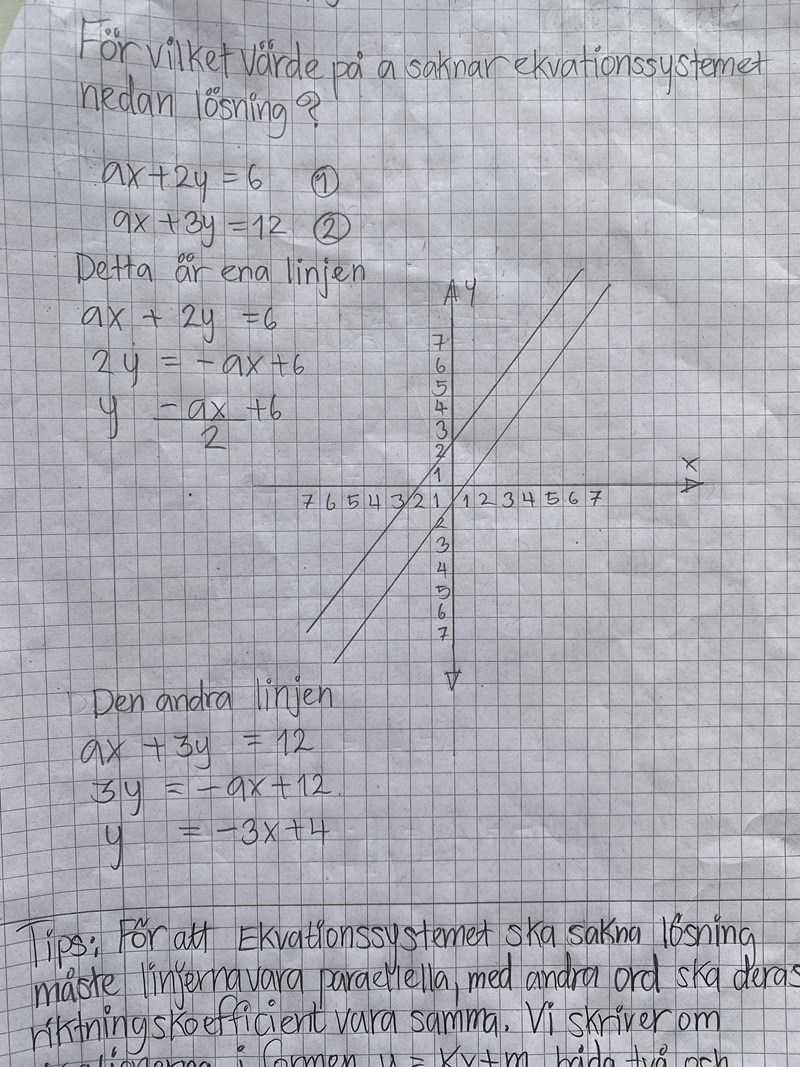 För vilket värde på a saknar ekvationssystemet
nedan lösning?
ax + 2y = 6 ①
ax + 3y = 12 ②
Detta är ena linjen
ax + 2y = 6
2y = -ax + 6
y -ax/2 + 6
y
7
6
5
4
3
2
1
x
7 6 5 4 3 2 1 1 2 3 4 5 6 7
2
3
4
5
6
7
Den andra linjen
ax + 3y = 12
3y = -ax + 12
y = -3x + 4
Tips: För att Ekvationssystemet ska sakna lösning
måste linjerna vara paraellella, med andra ord ska deras
riktningskoefficient vara samma. Vi skriver om
i formen y = kx + m båda två och